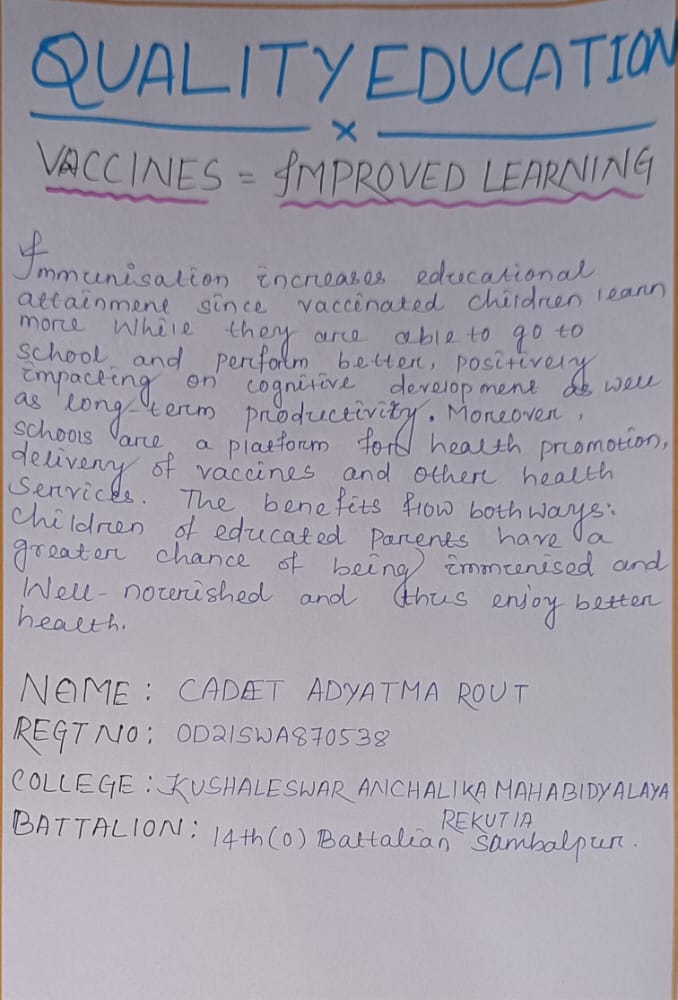 QUALITY EDUCATION
x
VACCINES = IMPROVED LEARNING
Immunisation increases educational
attainment since vaccinated children learn
more while they are able to go to
school and perform better, positively
impacting on cognitive development as well
as long-term productivity. Moreover,
schools are a platform for health promotion,
delivery of vaccines and other health
services. The benefits flow both ways:
children of educated parents have a
greater chance of being immunised and
well-nourished and thus enjoy better
health.
NAME: CADET ADYATMA ROUT
REGT NO: OD21SWA870538
COLLEGE: KUSHALESWAR ANCHALIKA MAHABIDYALAYA
REKUTIA
BATTALION: 14th (O) Battalian Sambalpur.